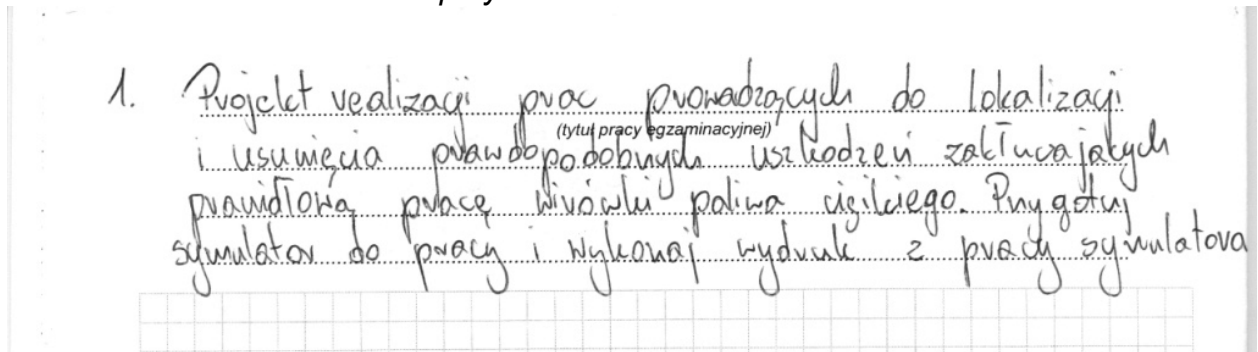 1. Projekt realizacji prac prowadzących do lokalizacji
(tytuł pracy egzaminacyjnej)
i usunięcia prawdopodobnych uszkodzeń zakłucająkych
prawidłową pracę wirówki paliwa ciężkiego. Przygotuj
symulator do pracy i wykonaj wydruk z pracy symulatora